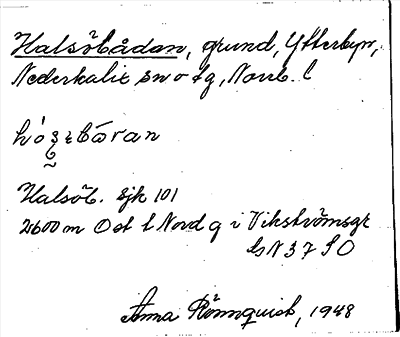 Halsöbådan, grund, Ytterbyn,
Nederkalix sn o tg, Norrb. l
Halsöb. Sjk 101
2600 m Ost t Nord g i Vikströmsgr
N 37 SO
Anna Rönnquist, 1948